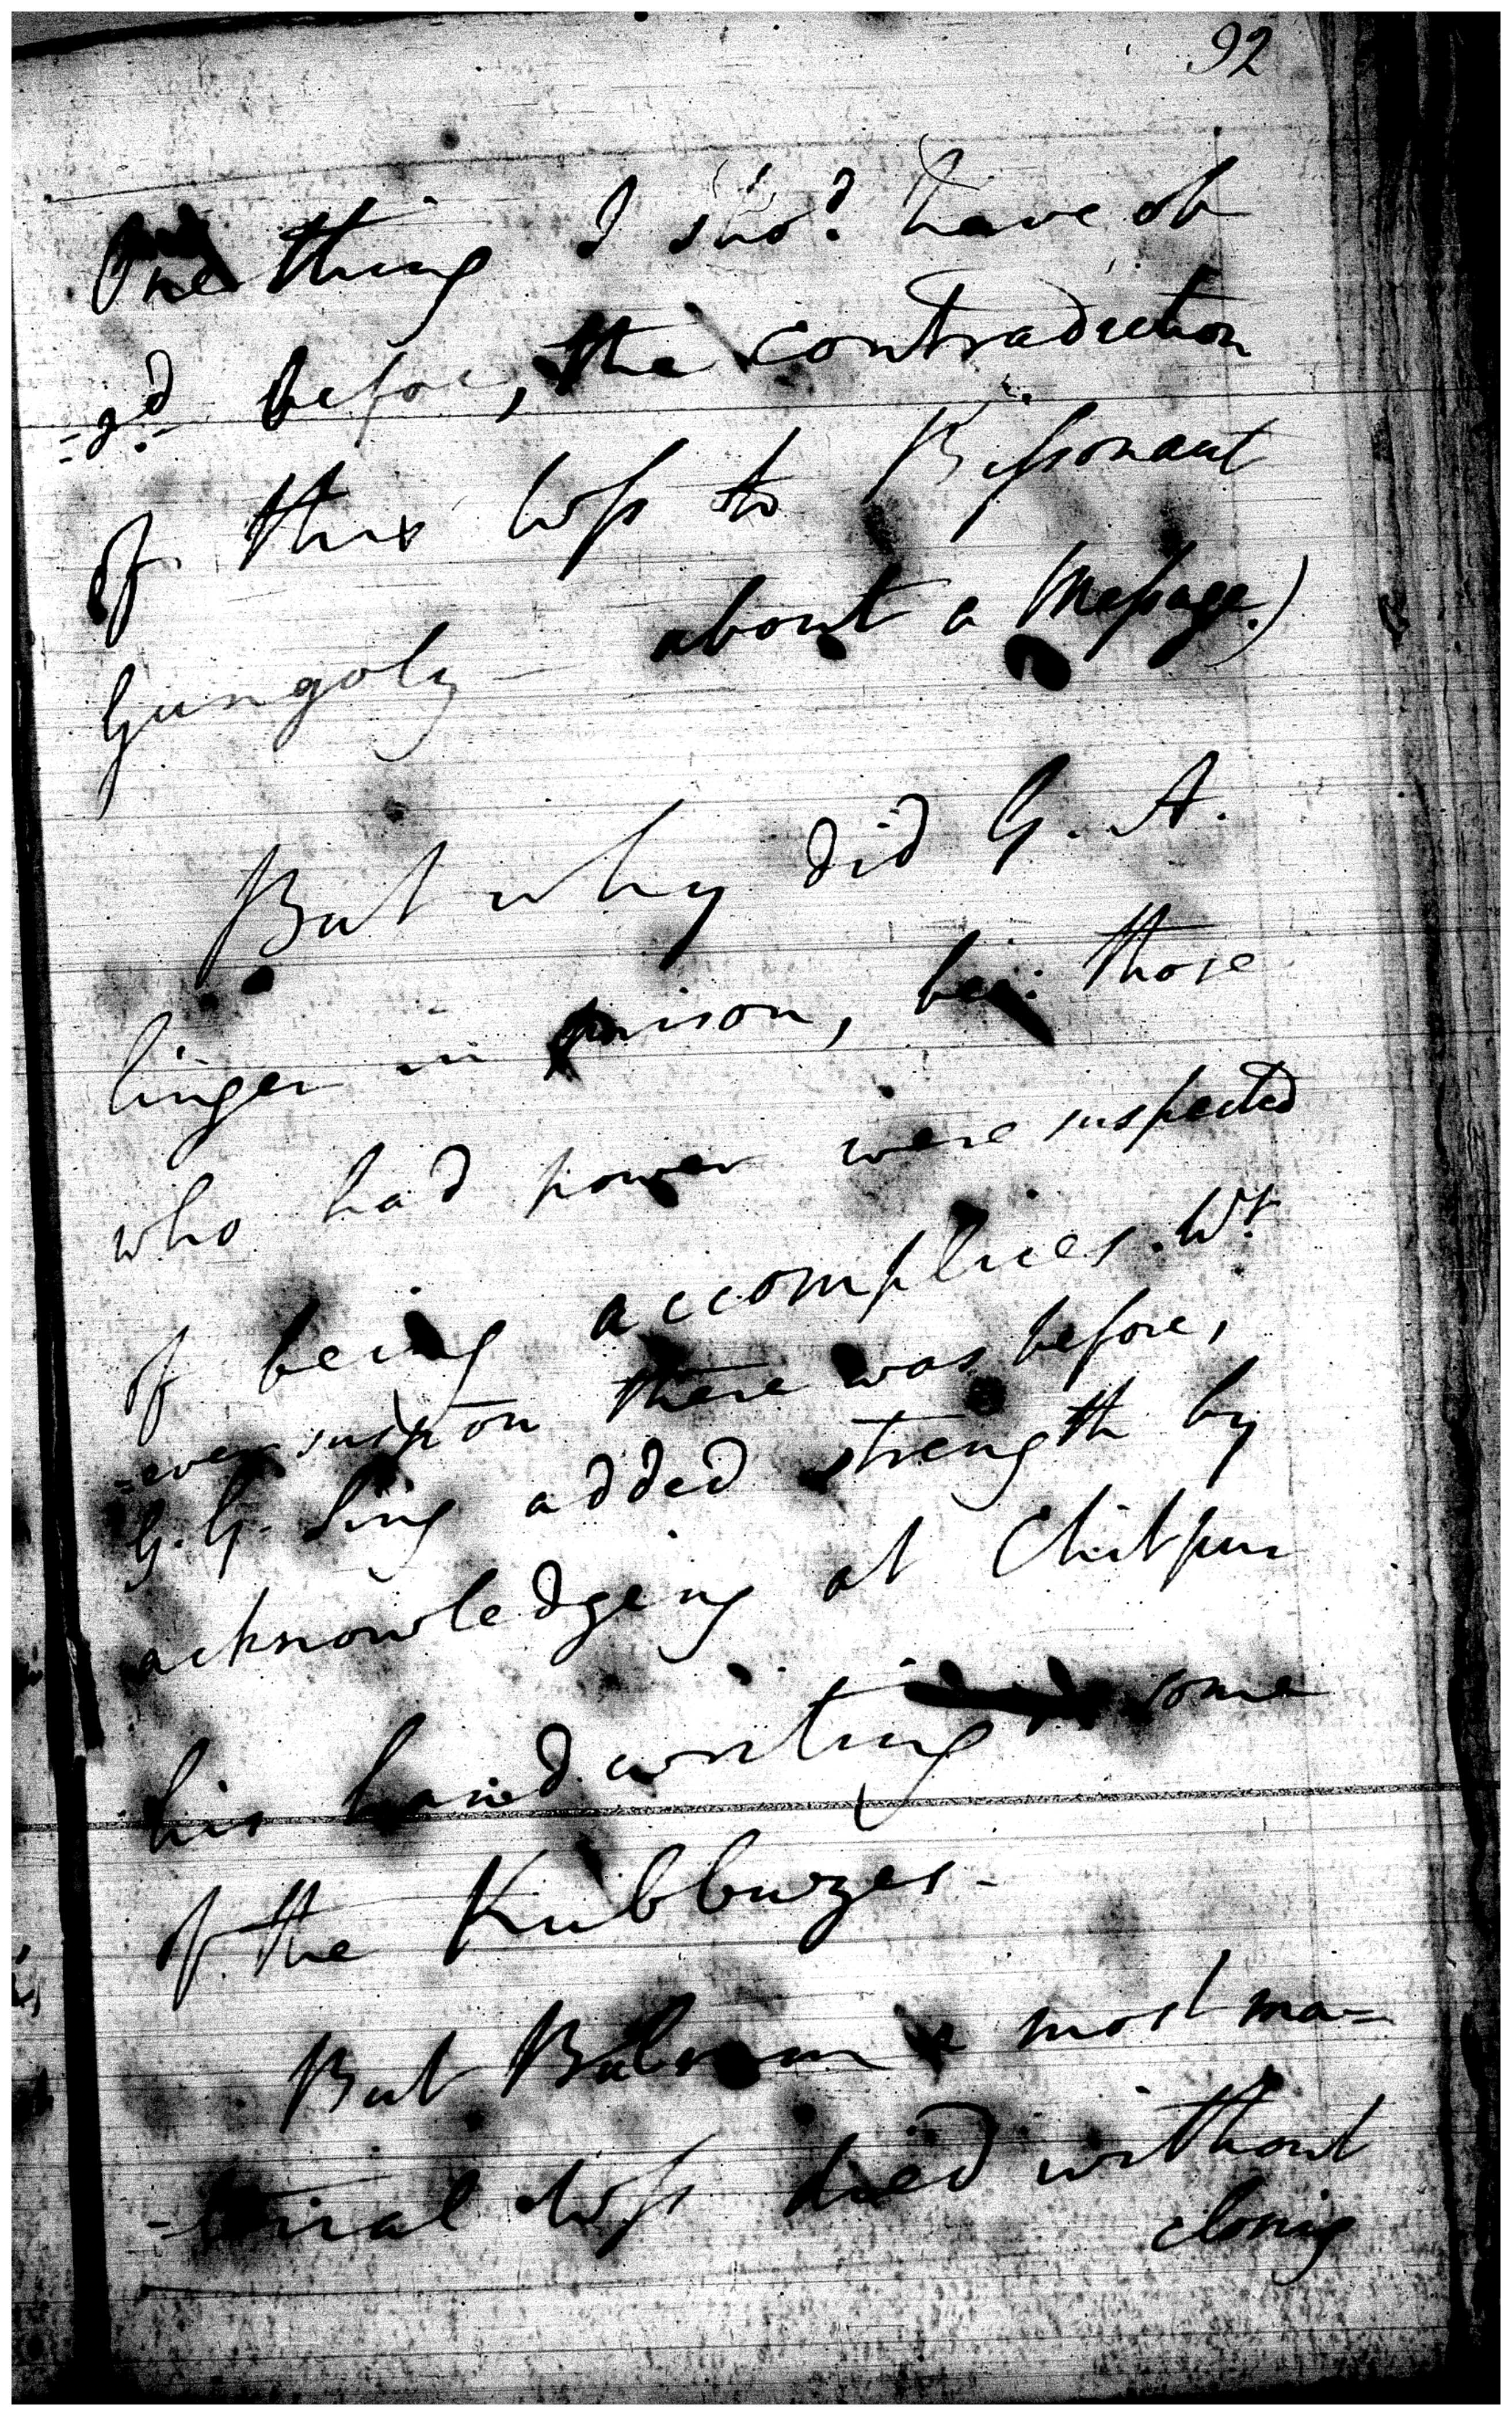 92
One thing I sho.d have ob
=s.d before, the contradiction
of this Wss to Bissonaut
Gungoly — about a Message.)
But why did G. A.
linger in prison, bec: those
who had power were suspected
of being accomplices. W.t
=ever suspion there was before,
G. G. Sing added strength by
acknowledgeing at Chitpur
his hand writing some
of the Kubbuzes -
But Bulram a most ma=
-terial Wss died without
closing